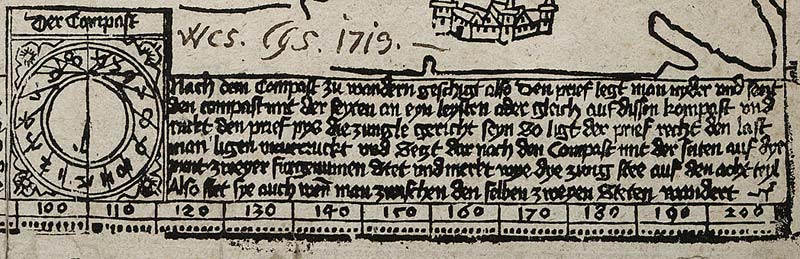 Der Compast
1719.
Nach dem Compast zu wandern geschigt also Den prief legt man nyder und setzt
den compast mit der seyten an eyn leysten oder gleich auf dissen kompast und
ruckt den prief pys die zungle gericht seyn So ligt der prief recht den last
man ligen unverruckt und Setzt dar nach den Compast mit der seiten auf dye
punt zweyer furgenumen stet und merkt wye dye zung stee auf den acht teyl
Also stet sye auch wen̄ man zwischen den selben zweyen Steten wandert
100 110 120 130 140 150 160 170 180 190 200